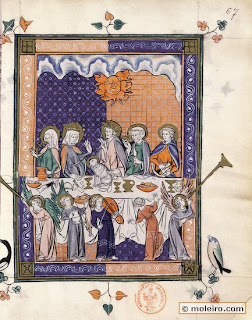 67
© moleiro.com